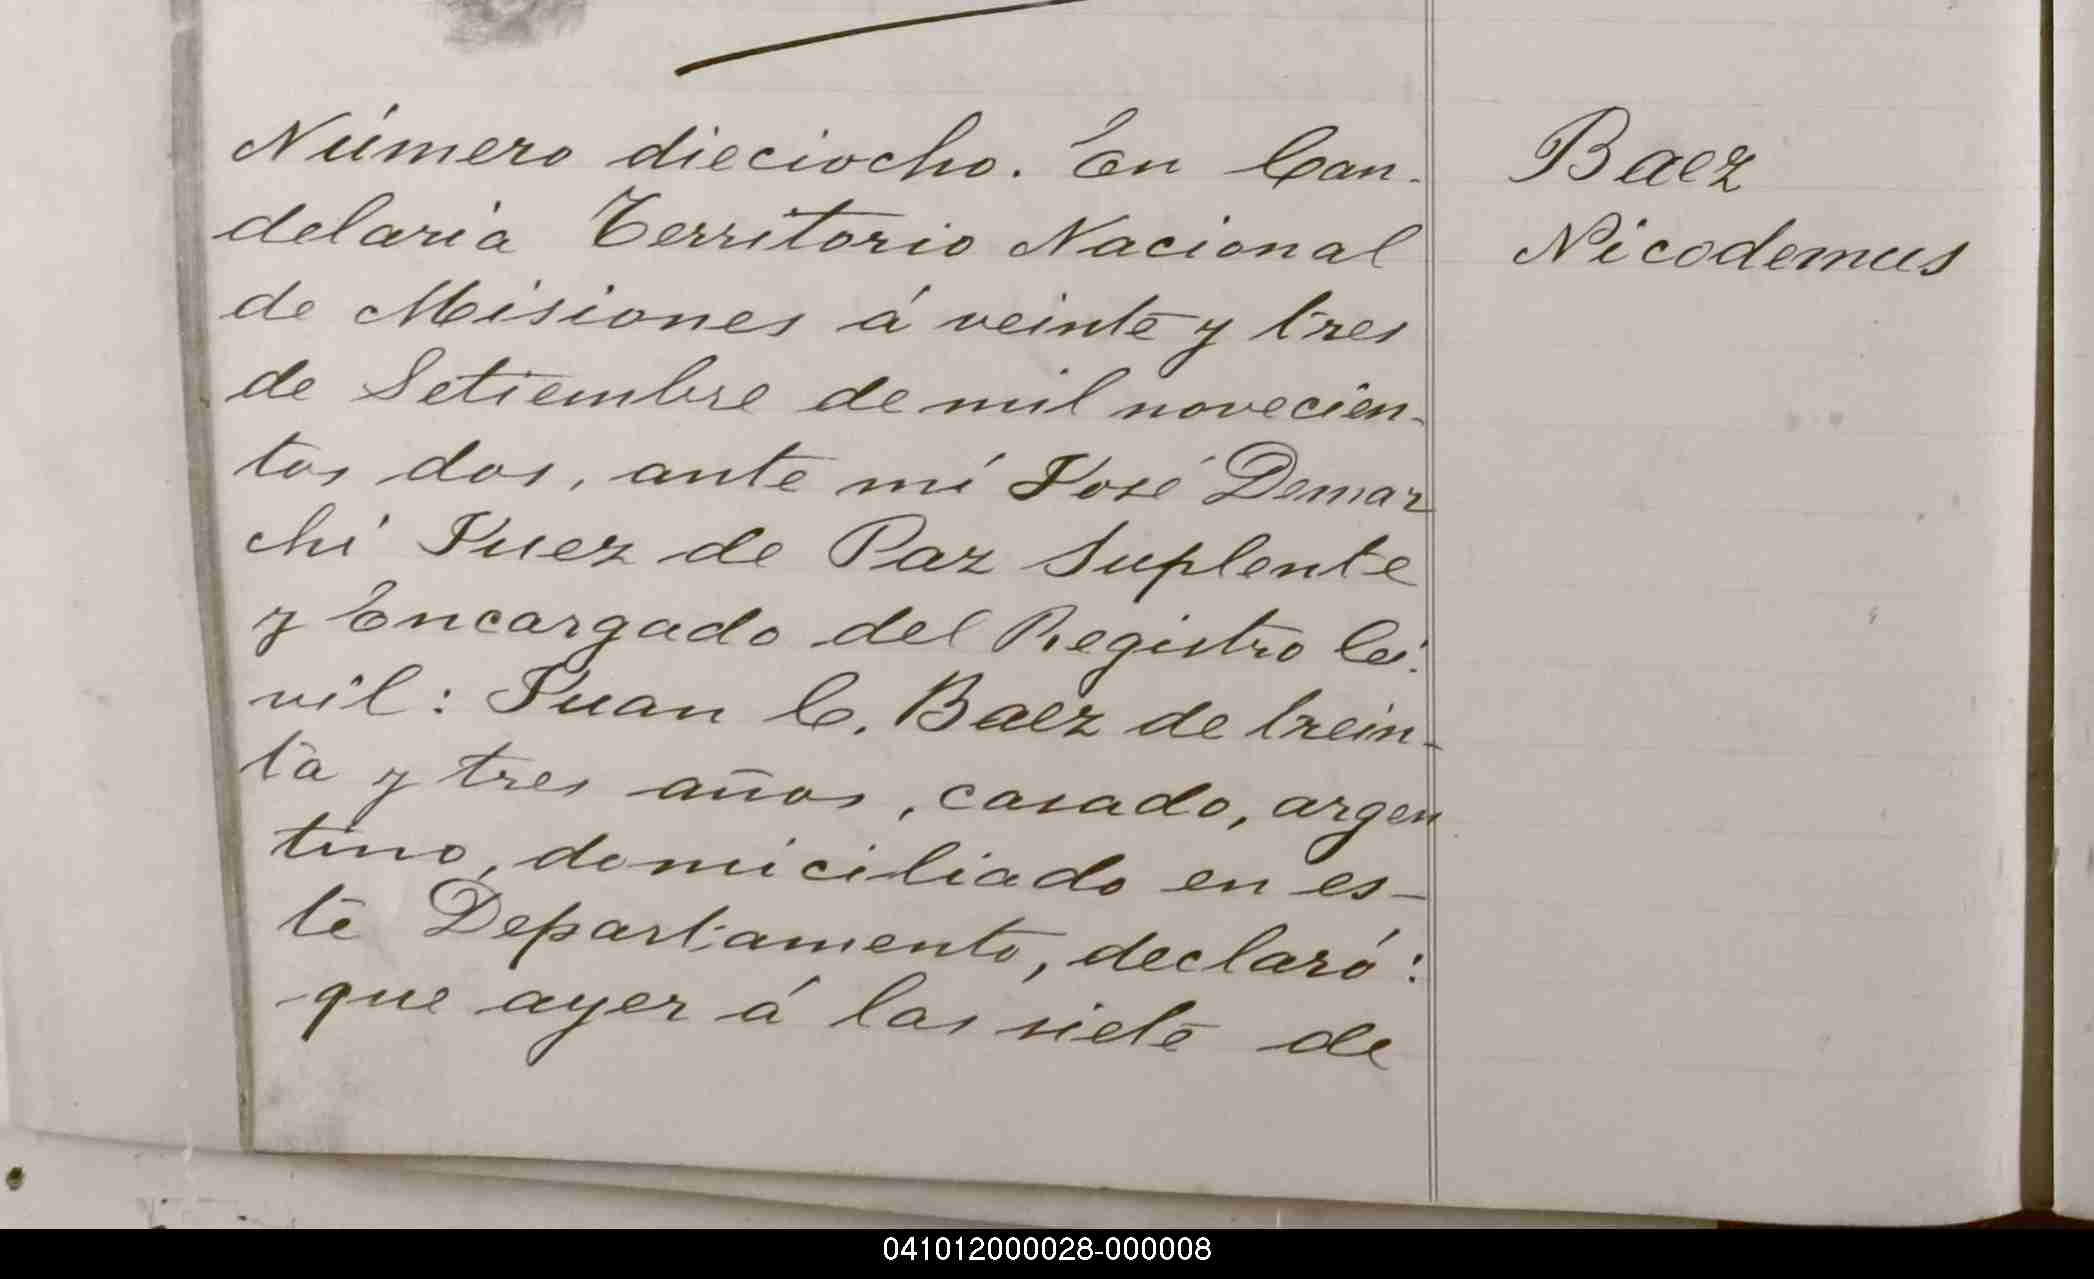 Número dieciocho. En Can-
delaria Territorio Nacional
de Misiones á veinte y tres
de Setiembre de mil novecien-
tos dos, ante mí José Demar
chi Juez de Paz Suplente
y Encargado del Registro Ci-
vil: Juan C. Baez de trein-
ta y tres años, casado, argen
tino, domiciliado en es-
te Departamento, declaró:
que ayer á las siete de
Baez
Nicodemus
041012000028-000008